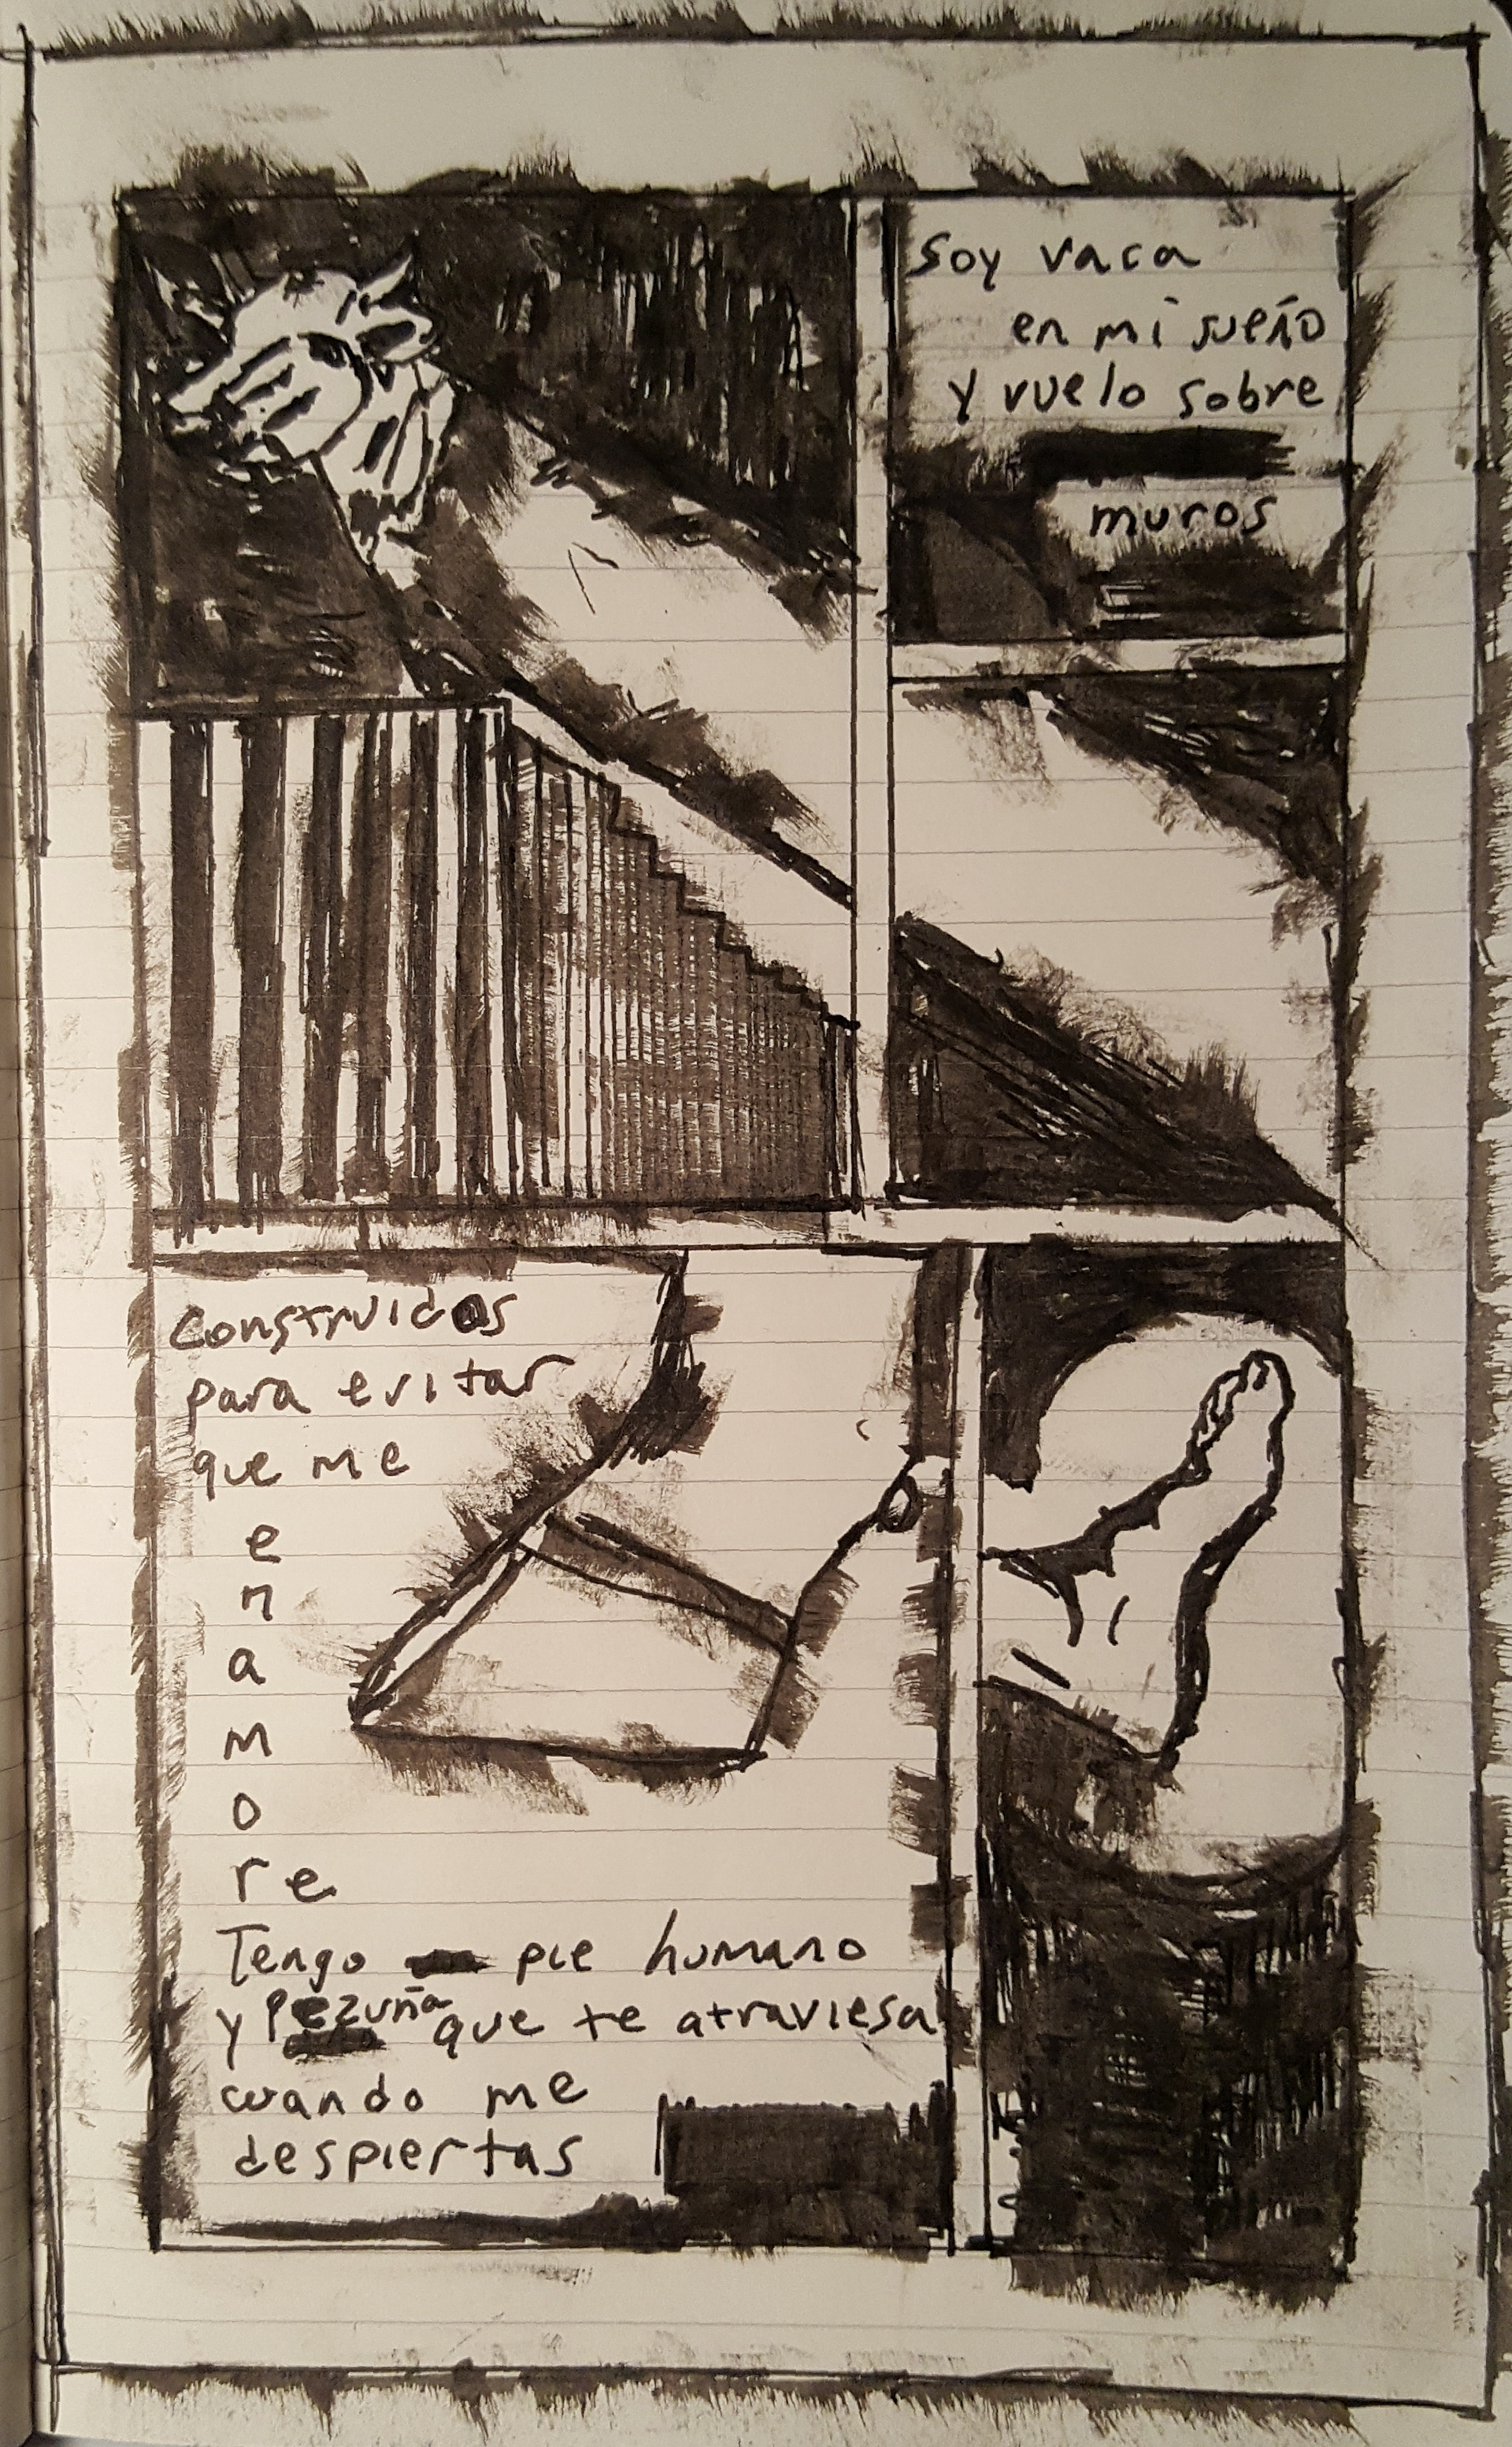 Soy vaca
en mi sueño
y vuelo sobre
muros
Construidos
para evitar
que me
e
n
a
m
o
re
Tengo pie humano
y pezuña que te atraviesa
cuando me
despiertas